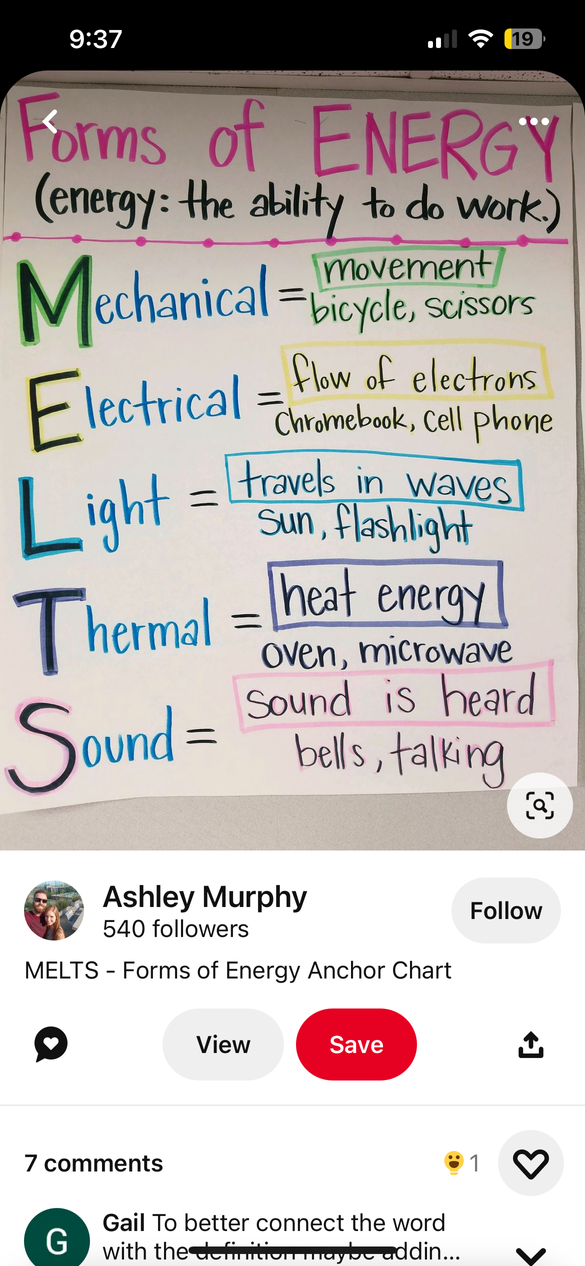 9:37
19
Forms of ENERGY
(energy: the ability to do work.)
Mechanical = movement
bicycle, scissors
Electrical = flow of electrons
Chromebook, Cell phone
Light = travels in waves
Sun, flashlight
Thermal = heat energy
oven, microwave
Sound = Sound is heard
bells, talking
Ashley Murphy
540 followers
Follow
MELTS - Forms of Energy Anchor Chart
View
Save
7 comments
1
G
Gail To better connect the word
with the definition maybe addin...